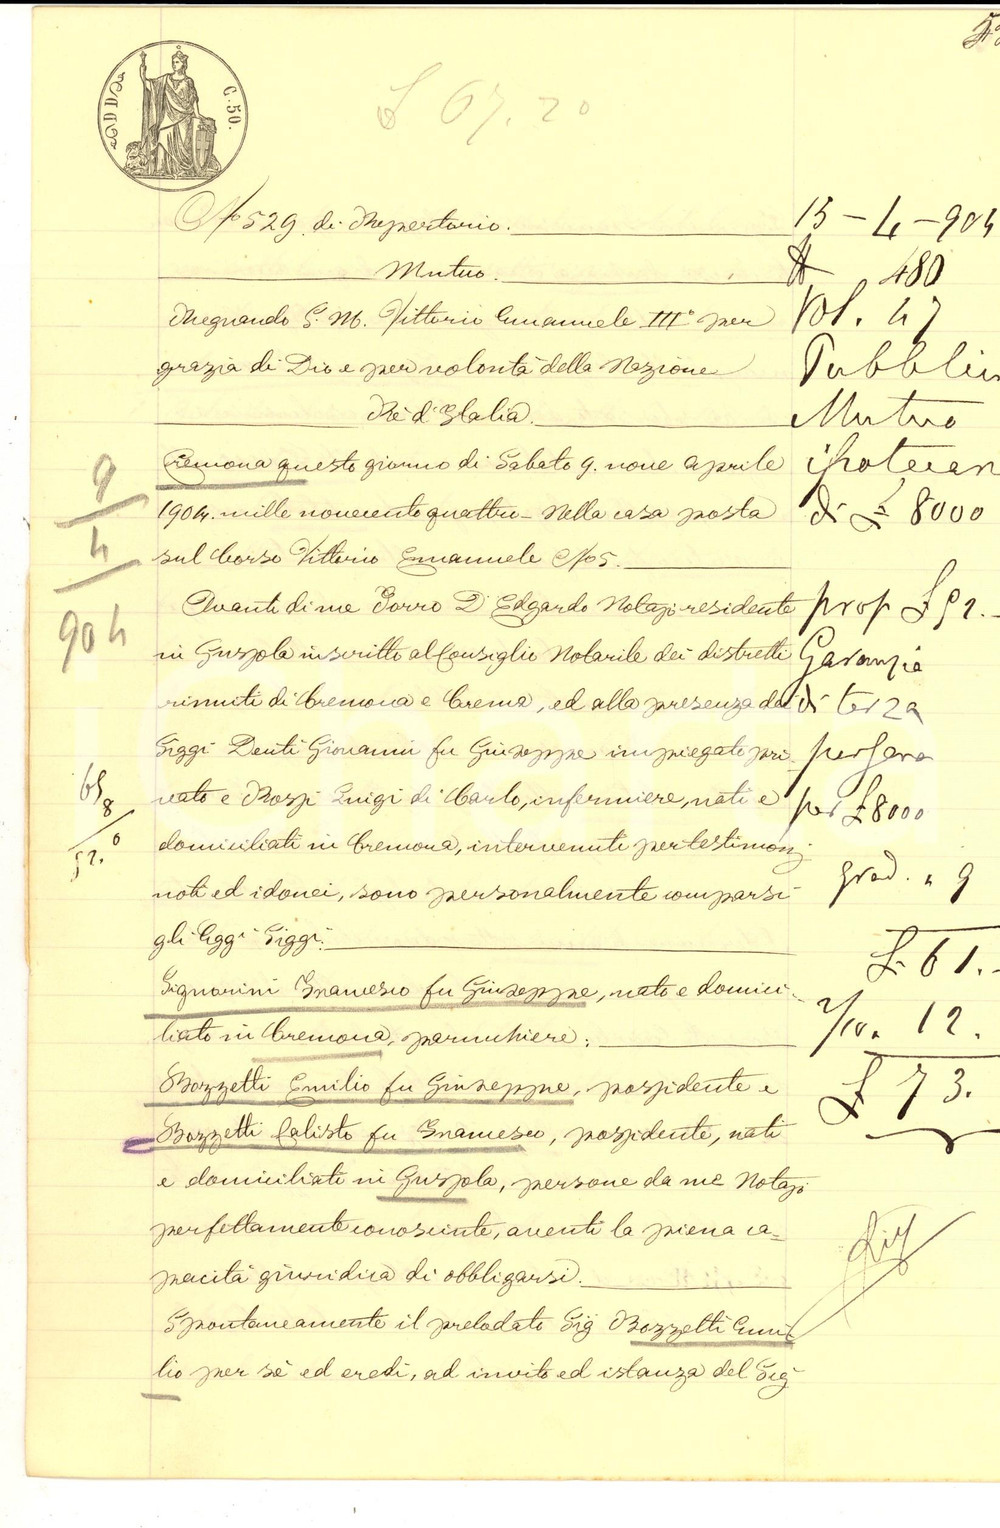 C. 50.
£ 67.20
N° 529 di Repertorio.
Mutuo.
Regnando S. M. Vittorio Emanuele III° per
grazia di Dio e per volontà della Nazione
Rè d'Italia.
Cremona questo giorno di Sabato 9. nove Aprile
1904. mille novecentoquattro - Nella casa posta
sul Corso Vittorio Emanuele N° 5.
Avanti di me Porro Dr Edgardo Notajo residente
in Gussola inscritto al Consiglio Notarile dei distretti
riuniti di Cremona e Crema, ed alla presenza dei
Siggi Denti Giovanni fu Giuseppe impiegato pri-
vato e Rossi Luigi di Carlo, infermiere, nati e
domiciliati in Cremona, intervenuti per testimonj
noti ed idonei, sono personalmente comparsi
gli Siggi:
Signorini Francesco fu Giuseppe, nato e domici-
liato in Cremona, parruchiere;
Bozzetti Emilio fu Giuseppe, possidente e
Bozzetti Calisto fu Francesco, possidente, nati
e domiciliati in Gussola, persone da me Notajo
perfettamente conosciute, aventi la piena ca-
pacità giuridica di obbligarsi.
Spontaneamente il prelodato Sig Bozzetti Emi
lio per sè ed eredi, ad invito ed istanza del Sig
9
4
904
65
8
52.0
15-4-904
480
Vol. 47
Mutuo
di £ 8000
prop £ 52.-
Garanzia
di terza
persona
per £ 8000
grad. " 9
£ 61.-
12.
£ 73.